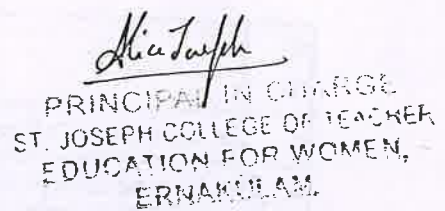 Alice Joseph
PRINCIPAL IN CHARGE
ST. JOSEPH COLLEGE OF TEACHER
EDUCATION FOR WOMEN,
ERNAKULAM.